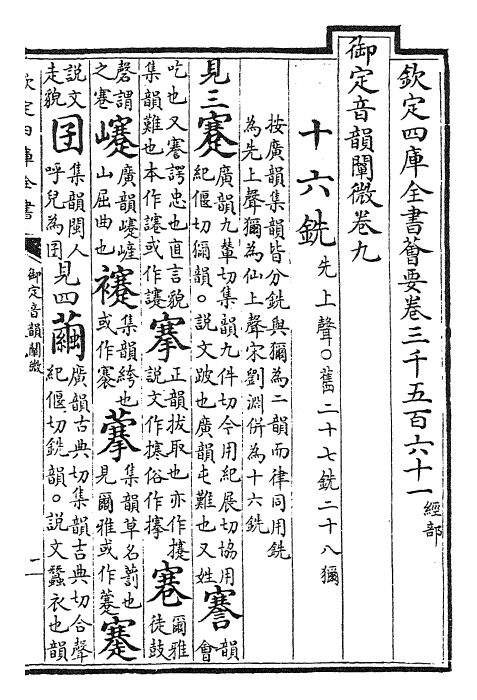 欽定四庫全書薈要卷三千五百六十一 經部
御定音韻闡微卷九
十六銑 先上聲○舊二十七銑二十八獮
按廣韻集韻皆分銑與獮為二韻而律同用銑
為先上聲獮為仙上聲宋劉淵併為十六銑
見三蹇 廣韻九輦切集韻九件切今用紀展切協用
紀偃切獮韻○說文跛也廣韻屯難也又姓 謇 韻會
吃也又謇諤忠也直言貌
集韻難也本作或作 搴 正韻拔取也亦作攓
說文作俗作搴 寋 爾雅徒鼓
磬謂之寋 㠔 廣韻㠔嵼
山屈曲也 集韻絝也
或作褰 集韻草名葥也
見爾雅或作
說文走貌 囝 集韻閩人
呼兒為囝 見四繭 廣韻古典切集韻古典切合聲
紀偃切銑韻○說文蠶衣也韻
欽定四庫全書
御定音韻闡微
二